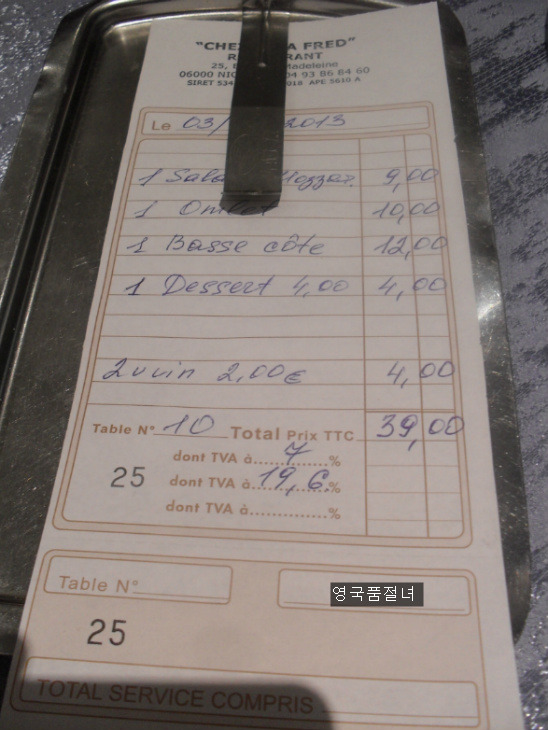 "CHE A FRED"
R RANT
25, Madeleine
06000 NIC 04 93 86 84 60
SIRET 534 018 APE 5610 A
Le 03/ 2013
1 Sala Mozzar. 9,00
1 Om 10,00
1 Basse côte 12,00
1 Dessert 4,00 4,00
2 vin 2,00€ 4,00
Table N° 10 Total Prix TTC 39,00
dont TVA à 7 %
25 dont TVA à 19,6 %
dont TVA à %
Table N°
영국품절녀
25
TOTAL SERVICE COMPRIS